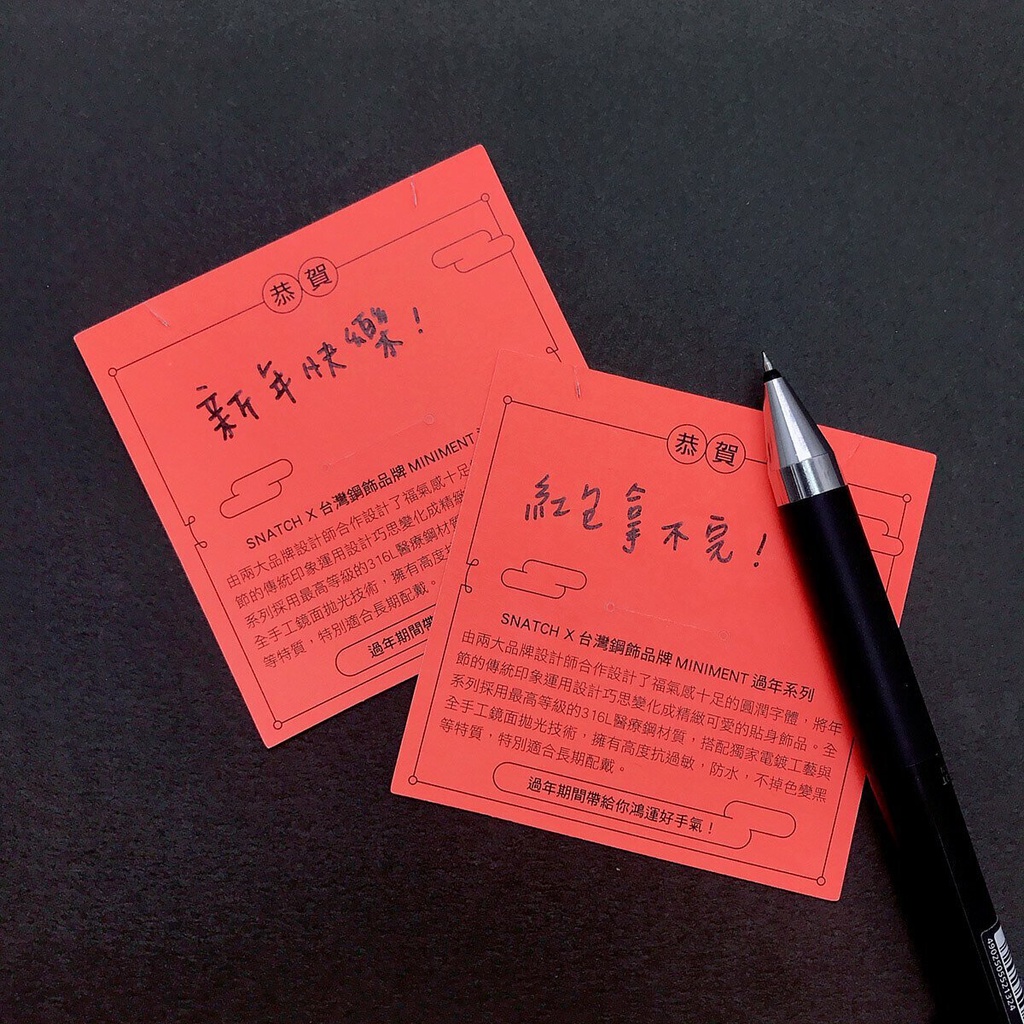 恭賀
新年快樂!
SNATCH X 台灣鋼飾品牌 MINIMENT
由兩大品牌設計師合作設計了福氣感十足
節的傳統印象運用設計巧思變化成精緻
系列採用最高等級的316L醫療鋼材質
全手工鏡面拋光技術，擁有高度
等特質，特別適合長期配戴。
過年期間帶
恭賀
紅包拿不完!
SNATCH X 台灣鋼飾品牌 MINIMENT 過年系列
由兩大品牌設計師合作設計了福氣感十足的圓潤字體，將年
節的傳統印象運用設計巧思變化成精緻可愛的貼身飾品。全
系列採用最高等級的316L醫療鋼材質，搭配獨家電鍍工藝與
全手工鏡面拋光技術，擁有高度抗過敏，防水，不掉色變黑
等特質，特別適合長期配戴。
過年期間帶給你鴻運好手氣！
4902505521324